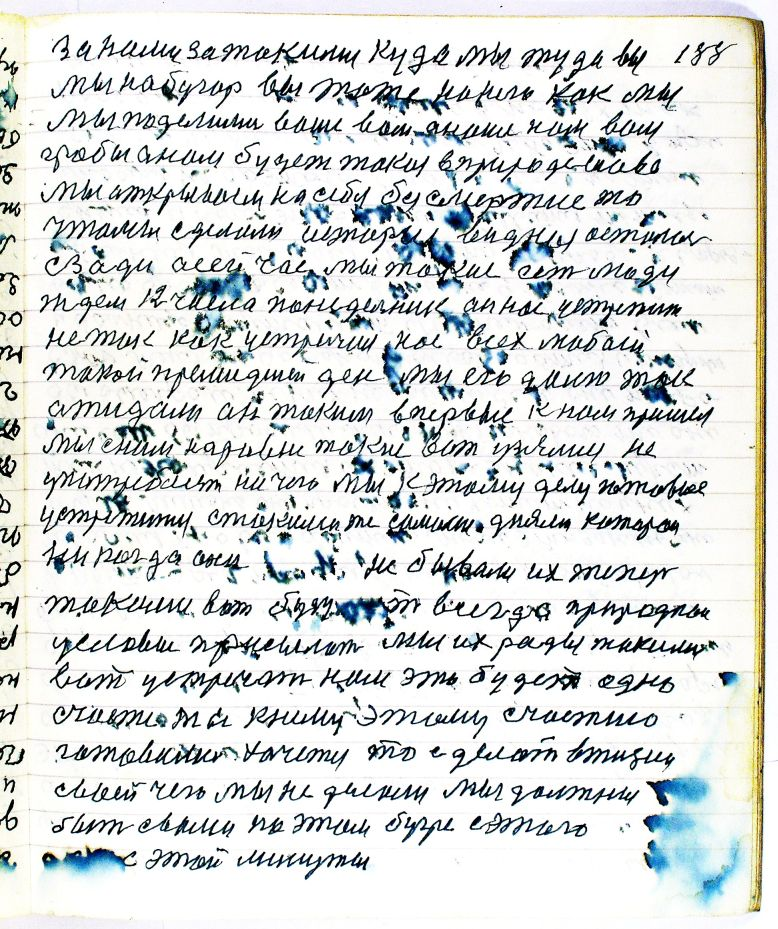 за нами за такими куда мы туда вы 188
мы на бугор вы тоже на него как мы
мы поделили ваше вам а наше нам вам
гробы а нам будет такая в природе слава
мы открываем на себя бесмертие то
что мы сделали история видная осталась
сзади а сейчас мы такие есть люди
ждем 12 часа понеделник он нас устретит
не так как устричал нас всех любой
такой прешедший ден мы его давно так
ожидали он таким впервые к нам пришел
мы с ним наравне такие вот узялися не
на чего мы к этому делу готовые
устретится с такими же самыми днями которои
никогда они не бывали их тепер
такими вот всегда природнаи
условия присылат мы их рады такими
вот устречат нам это будет одно
счастя мы к нему этому счастию
готовилис хочется то сделат в жизни
своей чего мы не делали мы должны
быт своими на этом бугре с этого
с этой минуты